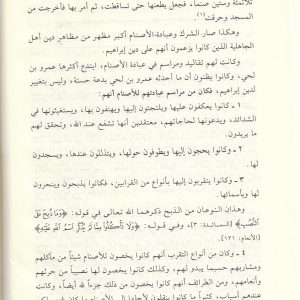 ثلاثمئة وستين صنماً، فجعل يطعنها حتى تساقطت، ثم أمر بها فأخرجت من
المسجد وحرقت(١).
وهكذا صار الشرك وعبادة الأصنام أكبر مظهر من مظاهر دين أهل
الجاهلية الذين كانوا يزعمون أنهم على دين إبراهيم.
وكانت لهم تقاليد ومراسم في عبادة الأصنام، ابتدع أكثرها عمرو بن
لحي، وكانوا يظنون أن ما أحدثه عمرو بن لحي بدعة حسنة، وليس بتغيير
لدين إبراهيم، فكان من مراسم عبادتهم للأصنام أنهم:
١ ـ كانوا يعكفون عليها ويلتجئون إليها ويهتفون بها، ويستغيثونها في
الشدائد، ويدعونها لحاجاتهم، معتقدين أنها تشفع عند الله، وتحقق لهم
ما يريدون.
٢ ـ وكانوا يحجون إليها ويطوفون حولها، ويتذللون عندها، ويسجدون
لها.
٣ ـ وكانوا يتقربون إليها بأنواع من القرابين، فكانوا يذبحون وينحرون
لها وبأسمائها.
وهذان النوعان من الذبح ذكرهما الله تعالى في قوله: ﴿وَمَا ذُبِحَ عَلَى
النُّصُبِ﴾ [المائدة: ٣]، وفي قوله: ﴿وَلَا تَأْكُلُوا مِمَّا لَمْ يُذْكَرِ اسْمُ اللَّهِ عَلَيْهِ﴾
[الأنعام: ١٢١].
٤ ـ وكان من أنواع التقرب أنهم كانوا يخصون للأصنام شيئاً من مآكلهم
ومشاربهم حسبما يبدو لهم، وكذلك كانوا يخصون لها نصيباً من حرثهم
وأنعامهم، ومن الطرائف أنهم كانوا يخصون من ذلك جزءاً لله أيضاً، وكانت
عندهم أسباب، كثيراً ما كانوا ينقلون لأجلها إلى الأصنام ما كان